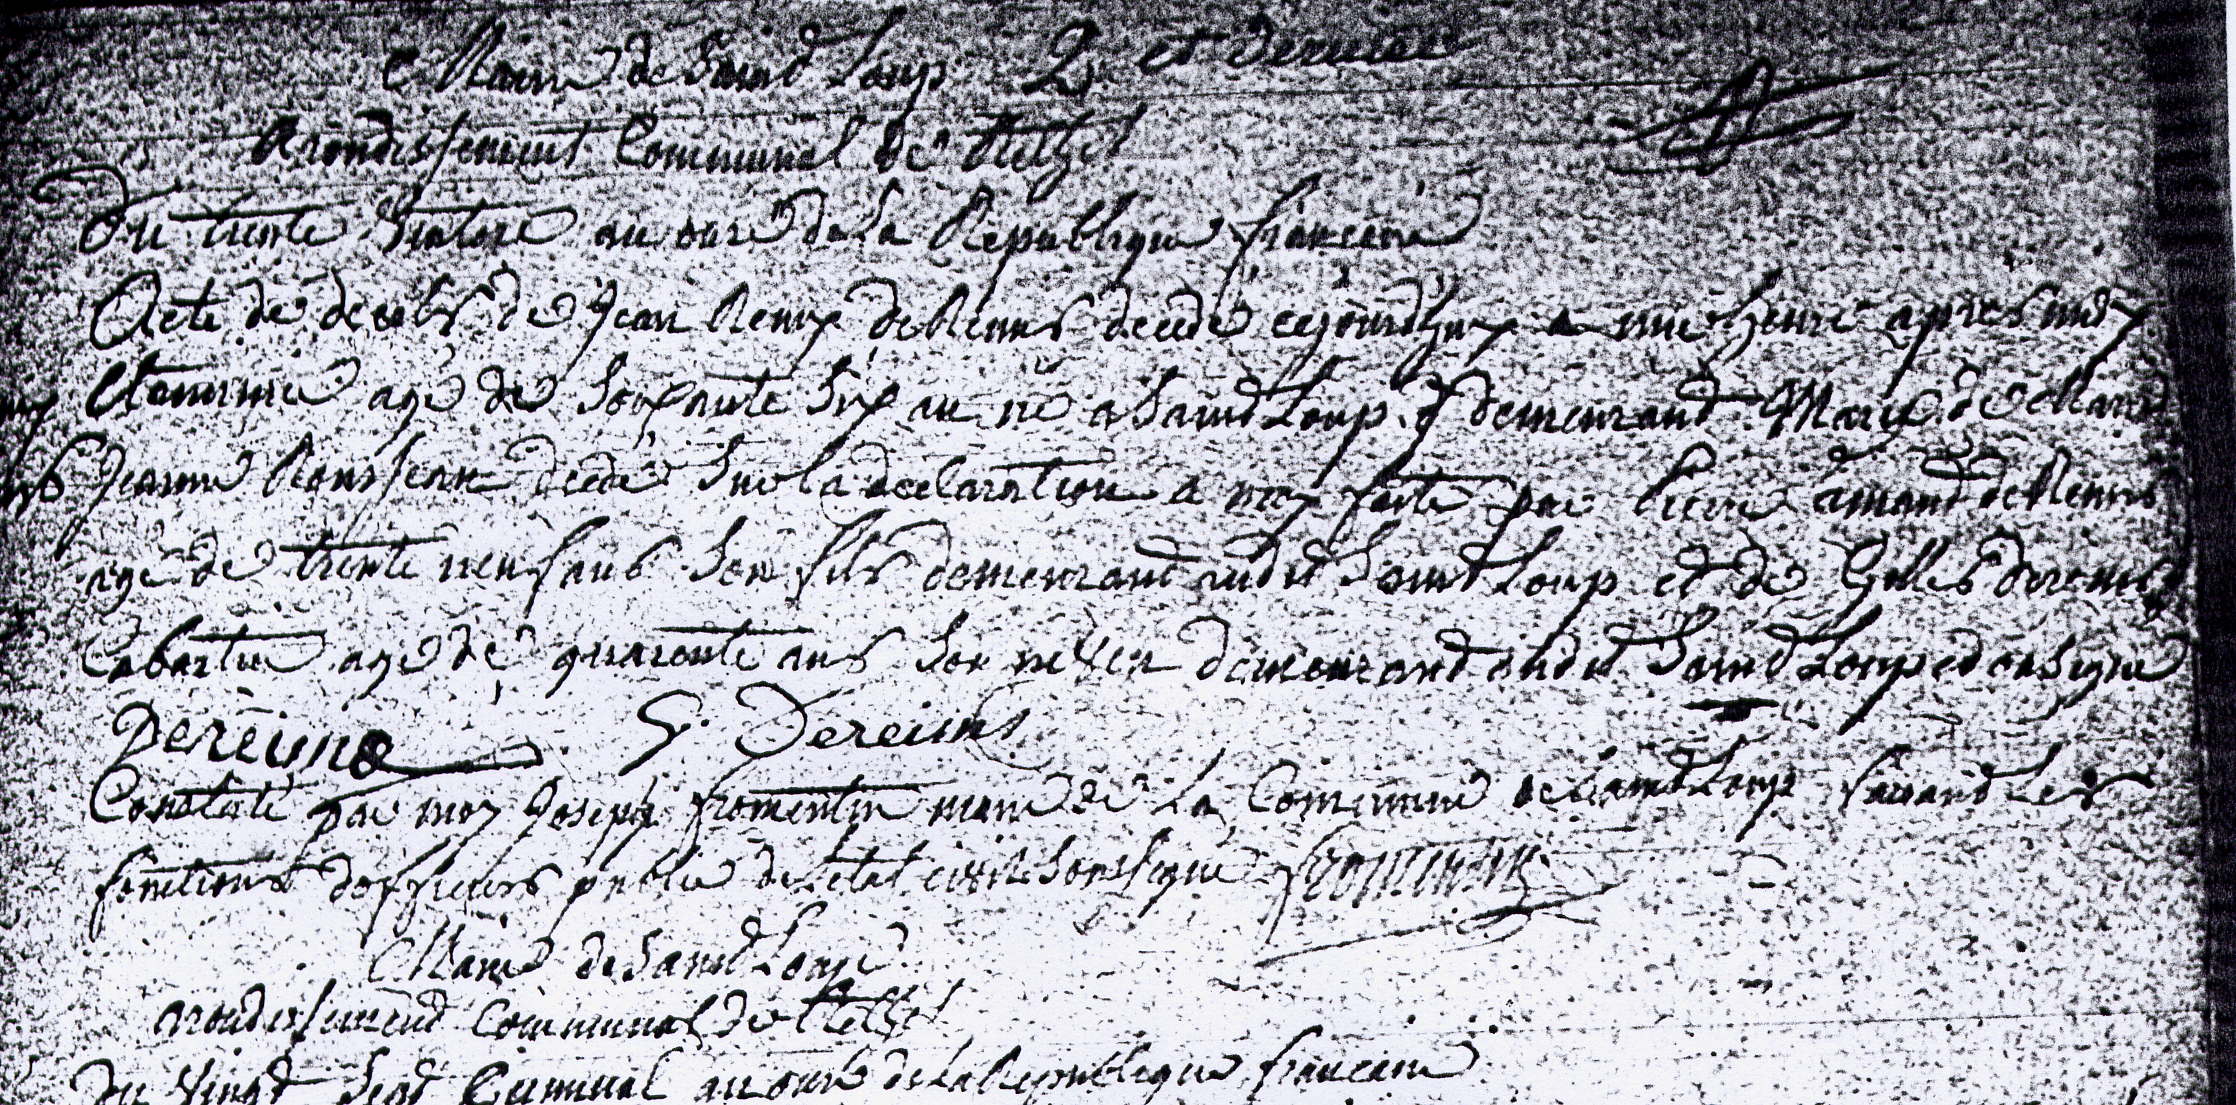 Mairie de Saind Loup 2 et dernier
Arondissement Communal de Rethel
Du trente Ventose an onze de la Republique francaise
Acte de decebs de Jean Remy deReims decedé cejourdhuy a une heure apres midy
age de Soixante Six an né a Saind Loup y demeurand de Marie
Jeanne Rousseau decedé Sur la declaration a moy faite par Pierre amand deReims
agé de trente neuf ans Son fils demeurand audit Saind Loup et de Gilles Dereims
Cabartier agé de quarante ans Son neveu demeurand audit Saind Loup ed onSigne
Dereims G. Dereims
Constaté par moy Joseph fromentin maire de La Commune de Saind Loup faisand Les
fonctions dofficiers public de Letat civil Soussigne fromentin
Mairie de Saind Loup
arondissemend Communal de Rethel
Du Vingd Sepd Germinal an onze de La Republique francaise